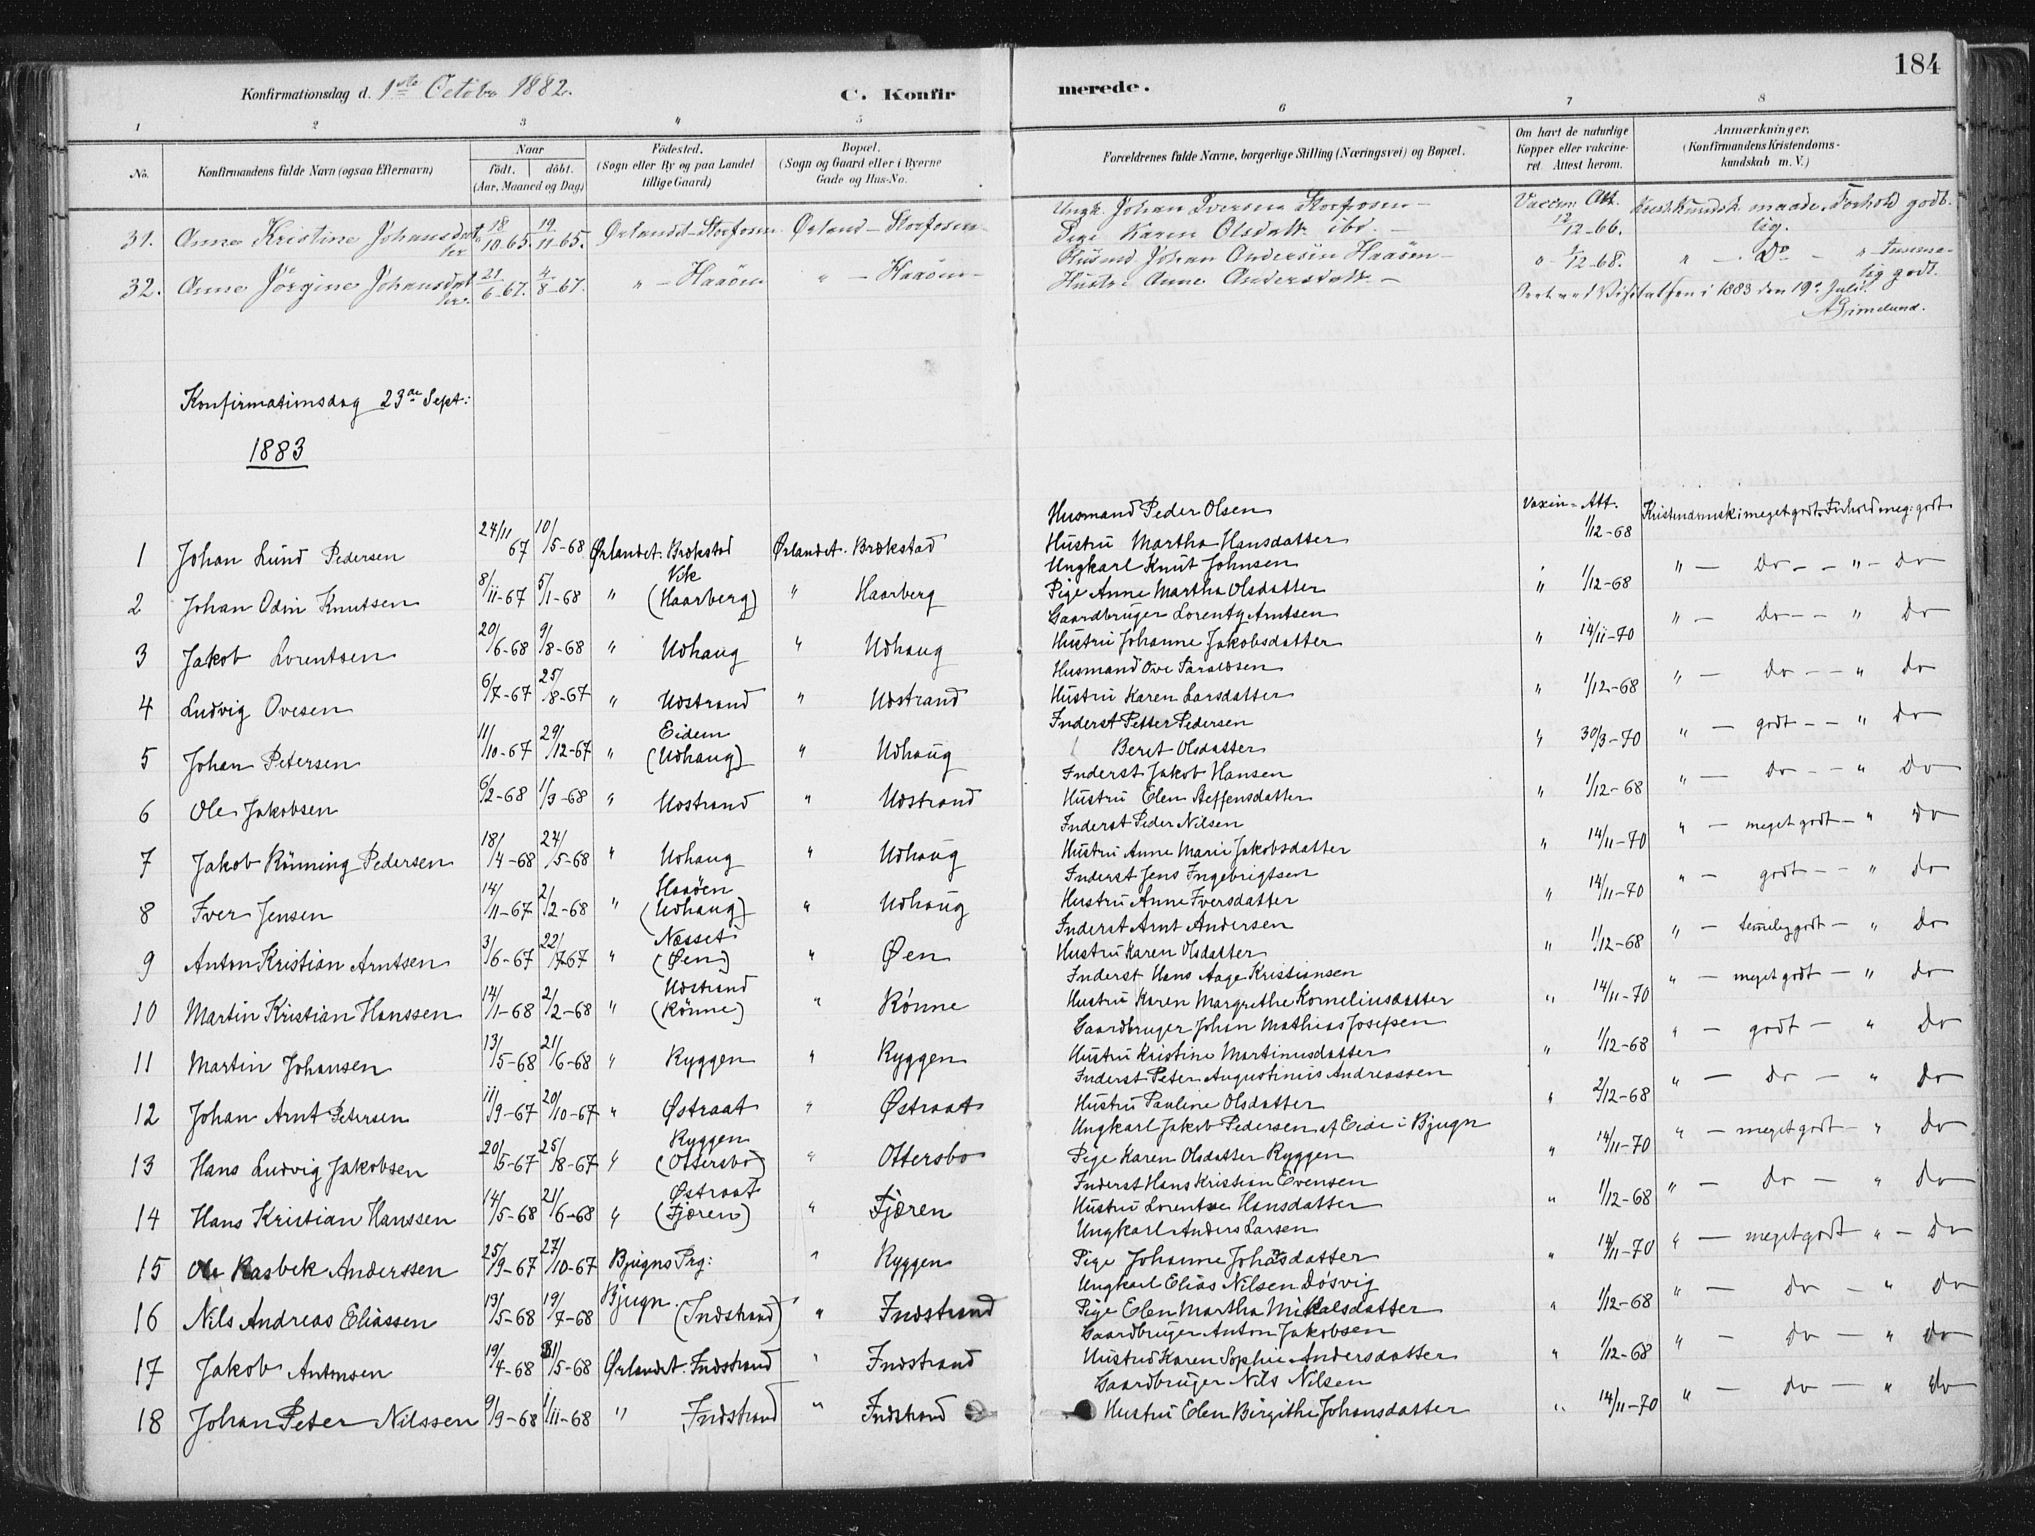 184
Konfirmationsdag d. 1ste Octobr 1882.
C. Konfirmerede.
1 2 3 4 5 6 7 8
No. Konfirmandens fulde Navn (ogsaa Efternavn) Naar født. døbt. (Aar, Maaned og Dag) Födested. (Sogn eller By og paa Landet tillige Gaard) Bopæl. (Sogn og Gaard eller i Byerne Gade og Hus-No. Forældrenes fulde Navne, borgerlige Stilling (Næringsvei) og Bopæl. Om havt de naturlige Kopper eller vakcineret. Attest herom. Anmærkninger. (Konfirmandens Kristendomskundskab m. V.)
Ungk. Johan Iversen Storfosen Vaccin. Att. Kristkundsk. maade. Forhold godt.
31. Anne Kristine Johansdatter 18/10-65. 19/11-65. Ørlandet-Storfosen Ørland-Storfosen Pige Karen Olsdatt. ibd. 12/12-66. lig.
Husmd. Johan Andersen Haaöen
32. Anne Jörgine Johansdatter 21/6-67. 4/8-67. " - Haaöen " - Haaöen Hustr. Anne Andersdatt. " 1/12-68. " - Do - " temmelig godt.
Seet ved Visitatsen i 1883 den 19de Juli.
AGrimelund.
Konfirmationsdag 23de Sept:
1883
Husmand Peder Olsen Vaxin- Att. Kristendomsk: meget godt. Forhold meg: godt
1 Johan Lund Pedersen 24/11 67 10/5-68 Ørlandet. Brekstad Ørlandet. Brekstad Hustru Martha Hansdatter 1/12-68
Vik Ungkarl Knut Johnsen
2 Johan Odin Knutsen 8/11-67 5/1-68 " (Haarberg) " Haarberg Pige Anne Martha Olsdatter " 1/12-68 " - Do - - " - Do
Gaardbruger Lorentz Arntsen
3 Jakob Lorentsen 20/6-68 9/8-68 " Udhaug " Udhaug Hustru Johanne Jakobsdatter " 14/11-70 " - Do - - " Do
Husmand Ove Saraldsen
4 Ludvig Ovesen 6/7-67 25/8-67 " Udstrand " Udstrand Hustru Karen Larsdatter " 1/12-68 " - Do - - " Do
Eidem Inderst Petter Pedersen
5 Johan Petersen 11/10-67 29/12-67 " (Udhaug) " Udhaug Beret Olsdatter " 30/3-70 " - godt - - " Do
Inderst Jakob Hansen
6 Ole Jakobsen 6/2-68 1/3-68 " Udstrand " Udstrand Hustru Elen Steffensdatter " 1/12-68 " - Do - - " Do
Inderst Peder Nilsen
7 Jakob Rönning Pedersen 18/4-68 24/5-68 " Udhaug " Udhaug Hustru Anne Marie Jakobsdatter " 14/11-70 " - meget godt - " Do
Haaöen Inderst Jens Ingebrigtsen
8 Iver Jensen 14/11-67 2/2-68 " (Udhaug) " Udhaug Hustru Anne Iversdatter " 14/11-70 " - godt - - " Do
Næsset Inderst Arnt Andersen
9 Anton Kristian Arntsen 3/6-67 22/7-67 " (Øen) " Øen Hustru Karen Olsdatter " 1/12-68 " - temelig godt - " Do
Udstrand Inderst Hans Aage Kristiansen
10 Martin Kristian Hanssen 14/1-68 2/2-68 " (Rönne) " Rönne Hustru Karen Margrethe Korneliusdatter " 14/11-70 " - meget godt - " Do
Gaardbruger Johan Mathias Josefsen
11 Martin Johansen 13/5-68 21/6-68 " Ryggen " Ryggen Hustru Kristine Martinusdatter " 1/12-68 " - godt - " Do
Inderst Peter Augustinus Andreassen
12 Johan Arnt Petersen 11/9-67 20/10-67 " Østraat " Østraat Hustru Pauline Olsdatter " 2/12-68 " - Do - " Do
Ryggen Ungkarl Jakob Pedersen af Eide i Bjugn
13 Hans Ludvig Jakobsen 20/5-67 25/8-67 " (Ottersbo) " Ottersbo Pige Karen Olsdatter Ryggen " 14/11-70 " - meget godt - " Do
Østraat Inderst Hans Kristian Evensen
14 Hans Kristian Hanssen 14/5-68 21/6-68 " (Fjæren) " Fjæren Hustru Lorentse Hansdatter " 1/12-68 " - Do - " Do
Ungkarl Anders Larsen
15 Ole Rasbek Anderssen 25/9-67 27/10-67 Bjugns Prg: " Ryggen Pige Johanne Johansdatter " 14/11-70 " - meget godt " - Do
Ungkarl Elias Nilsen Dösvig
16 Nils Andreas Eliassen 13/5-68 19/7-68 Bjugn. (Indstrand) " Indstrand Pige Elen Martha Mikalsdatter " 1/12-68 " - Do - " Do
Gaardbruger Anton Jakobsen
17 Jakob Antonsen 19/4-68 31/5-68 Ørlandet. Indstrand " Indstrand Hustru Karen Sophie Andersdatter " 1/12-68 " - Do - " Do
Gaardbruger Nils Nilsen
18 Johan Peter Nilssen 9/9-68 1/11-68 " Indstrand " Indstrand Hustru Elen Birgithe Johansdatter " 14/11-70 " - Do - " Do